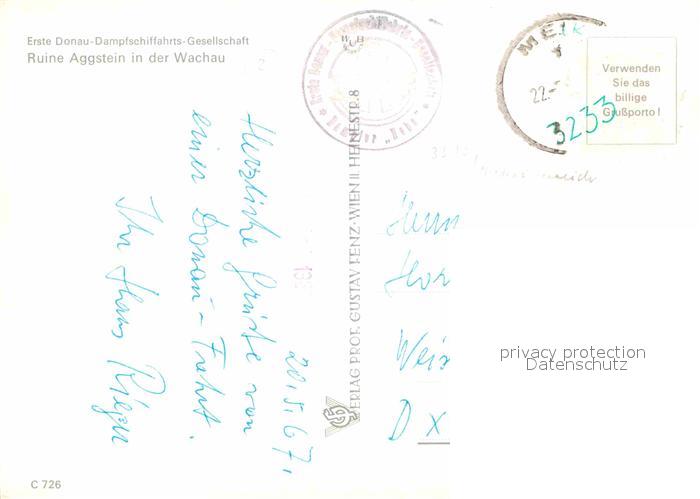 Erste Donau-Dampfschiffahrts-Gesellschaft
Ruine Aggstein in der Wachau
20.5.67.
Herzliche Grüße von
einer Donau-Fahrt.
Ihr Hans Rieger
C 726
VERLAG PROF. GUSTAV FENZ·WIEN II. HEINESTR. 8
Erste Donau-
MELK
22.
3233
Verwenden
Sie das
billige
Grußporto!
Herrn
Hor
D X
privacy protection
Datenschutz